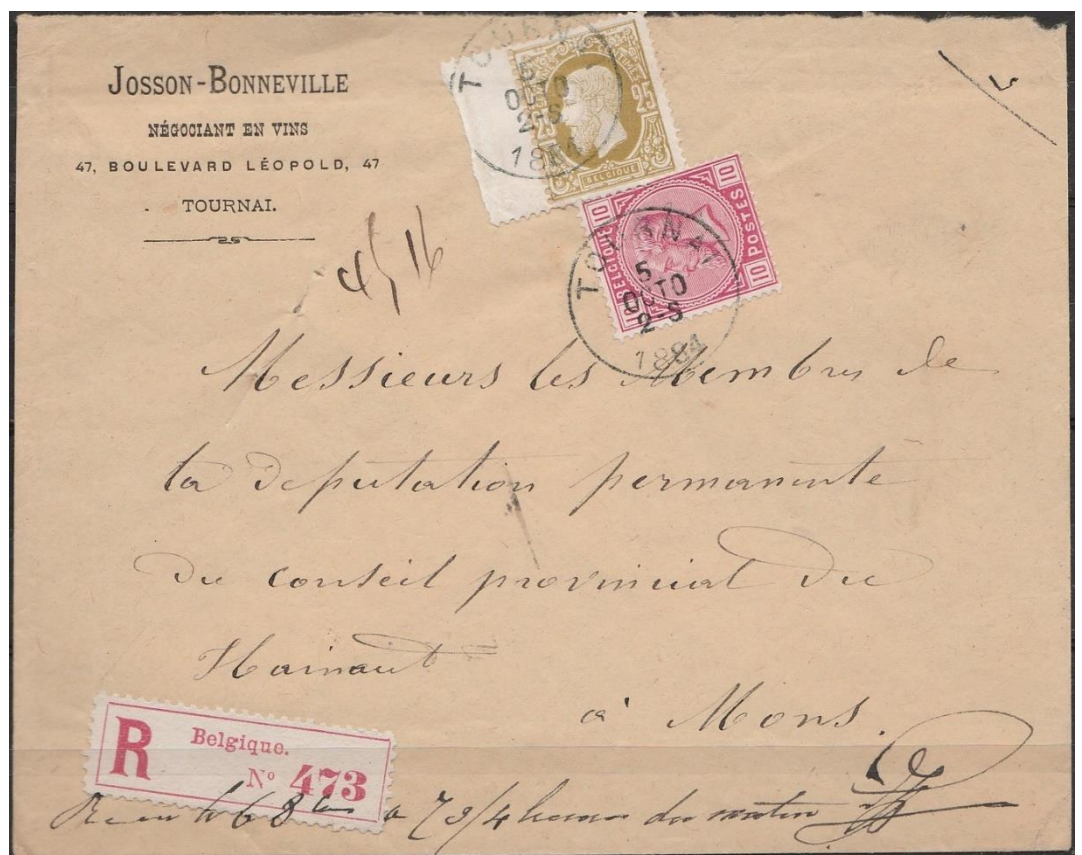 JOSSON-BONNEVILLE
NÉGOCIANT EN VINS
47, BOULEVARD LÉOPOLD, 47
TOURNAI.
25
25
BELGIQUE
5
OCTO
2-S
1884
10
BELGIQUE
10
10
POSTES
10
TOURNAI
5
OCTO
2-S
1884
16
Messieurs les Membres de
la députation permanente
du conseil provincial du
Hainaut
à Mons.
R Belgique.
Nº 473
le 6 8bre a 7 3/4 heures du matin